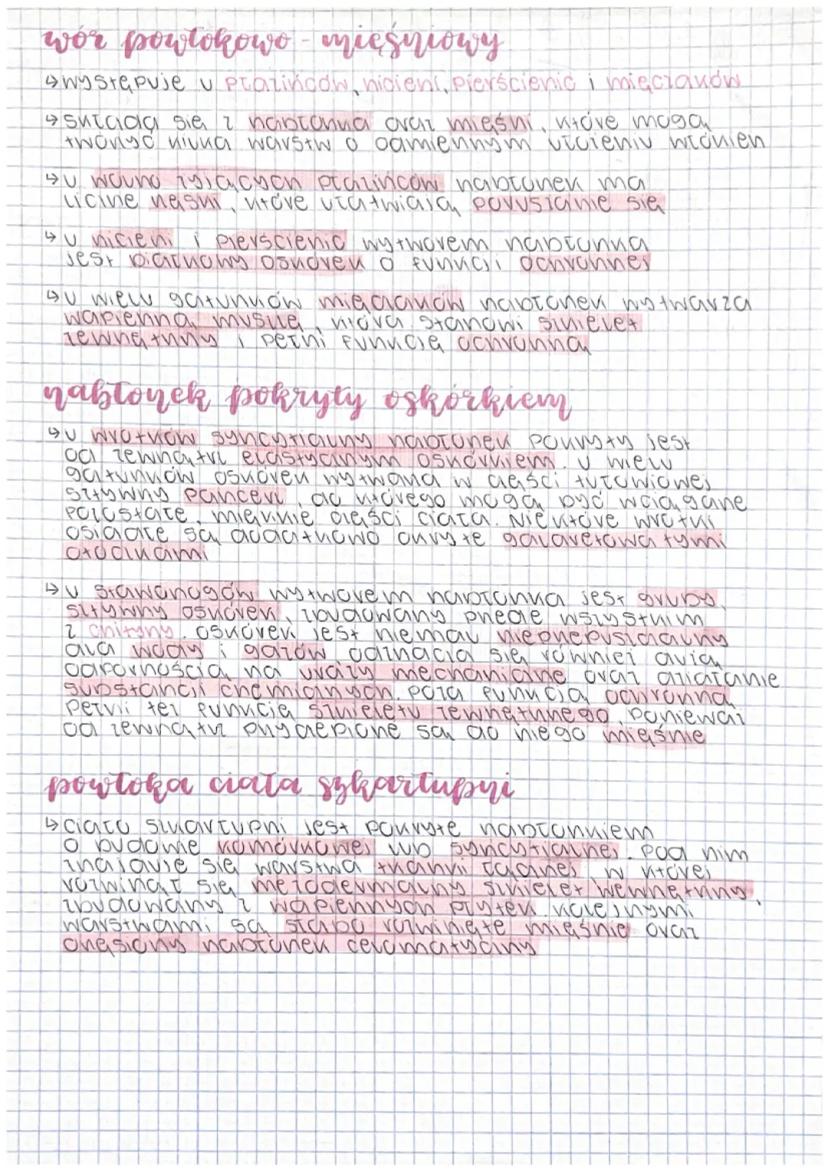 wór powłokowo - mięśniowy
↳ występuje u płazińców, nicieni, pierścienic i mięczaków
↳ składa się z nabłonka oraz mięśni, które mogą
tworzyć kilka warstw o odmiennym ułożeniu włókien
↳ u wolno żyjących płazińców nabłonek ma
liczne rzęski, które ułatwiają poruszanie się
↳ u nicieni i pierścienic wytworem nabłonka
jest białkowy oskórek o funkcji ochronnej
↳ u wielu gatunków mięczaków nabłonek wytwarza
wapienną muszlę, która stanowi szkielet
zewnętrzny i pełni funkcję ochronną
nabłonek pokryty oskórkiem
↳ u wrotków syncytialny nabłonek pokryty jest
od zewnątrz elastycznym oskórkiem. u wielu
gatunków oskórek wytwarza w części tułowiowej
sztywny pancerz, do którego mogą być wciągane
pozostałe, miękkie części ciała. Niektóre wrotki
osiadłe są dodatkowo okryte galaretowatymi
otoczkami
↳ u stawonogów wytworem nabłonka jest gruby,
sztywny oskórek, zbudowany przede wszystkim
z chityny. oskórek jest niemal nieprzepuszczalny
dla wody i gazów odznacza się również dużą
odpornością na urazy mechaniczne oraz działanie
substancji chemicznych. poza funkcją ochronną
pełni też funkcję szkieletu zewnętrznego, ponieważ
od zewnątrz przyczepione są do niego mięśnie
powłoka ciała szkarłupni
↳ ciało szkarłupni jest pokryte nabłonkiem
o budowie komórkowej lub syncytialnej. Pod nim
znajduje się warstwa tkanki łącznej, w której
rozwinął się mezodermalny szkielet wewnętrzny,
zbudowany z wapiennych płytek. kolejnymi
warstwami są słabo rozwinięte mięśnie oraz
orzęsiony nabłonek celomatyczny